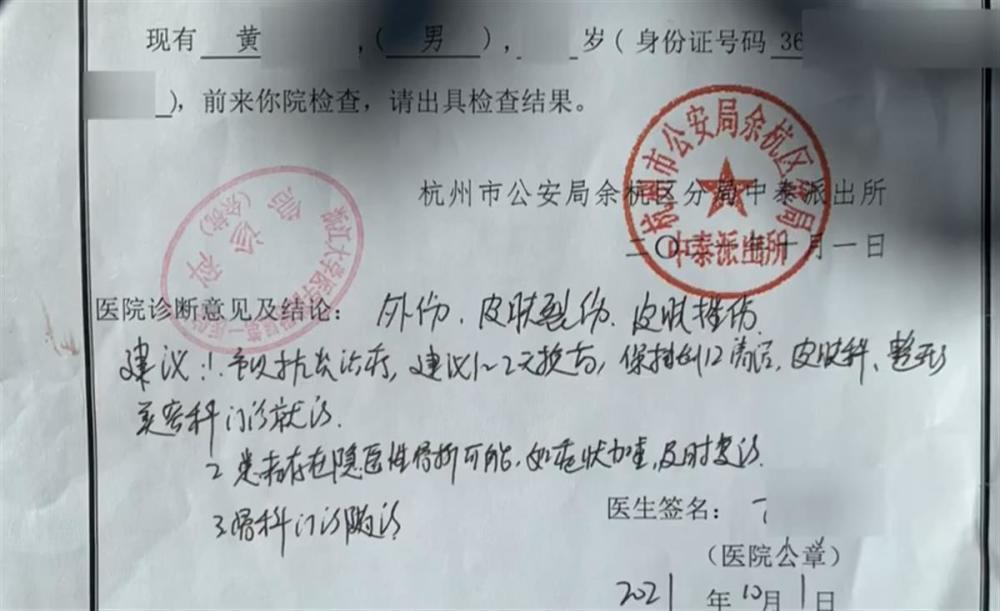 现有 黄 ,( 男 ), 岁(身份证号码 36
),前来你院检查,请出具检查结果。
杭州市公安局余杭区分局
中泰派出所
杭州市公安局余杭区分局中泰派出所
二〇二一年十月一日
浙江大学医学院附属第一医院
(余杭)
急诊科
医院诊断意见及结论: 外伤、皮肤裂伤、皮肤挫伤
建议:1.予以抗炎治疗,建议1~2天换药,保持创口清洁,皮肤科、整形
美容科门诊就诊.
2.患者存在隐匿性骨折可能,如症状加重,及时复诊.
3.骨科门诊随诊
医生签名:
(医院公章)
2021 年 10月 1日